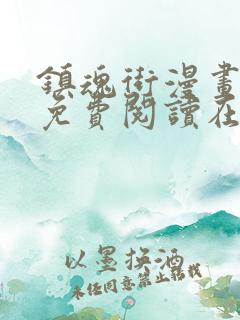 鎮魂街漫畫
免費閱讀在
以墨換酒
未经同意禁止转载